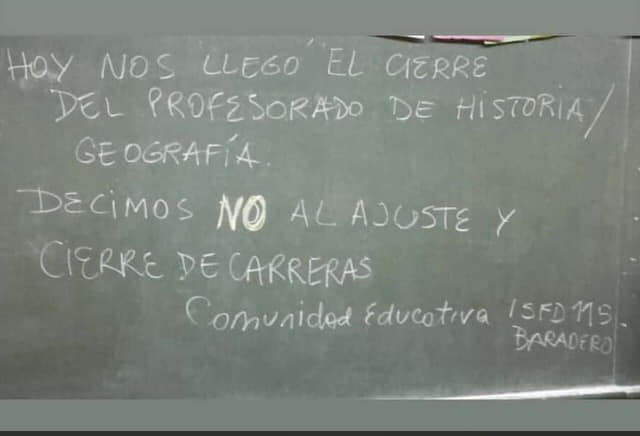 HOY NOS LLEGÓ EL CIERRE
DEL PROFESORADO DE HISTORIA/
GEOGRAFÍA.
DECIMOS NO AL AJUSTE Y
CIERRE DE CARRERAS
Comunidad Educativa ISFD 115.
BARADERO